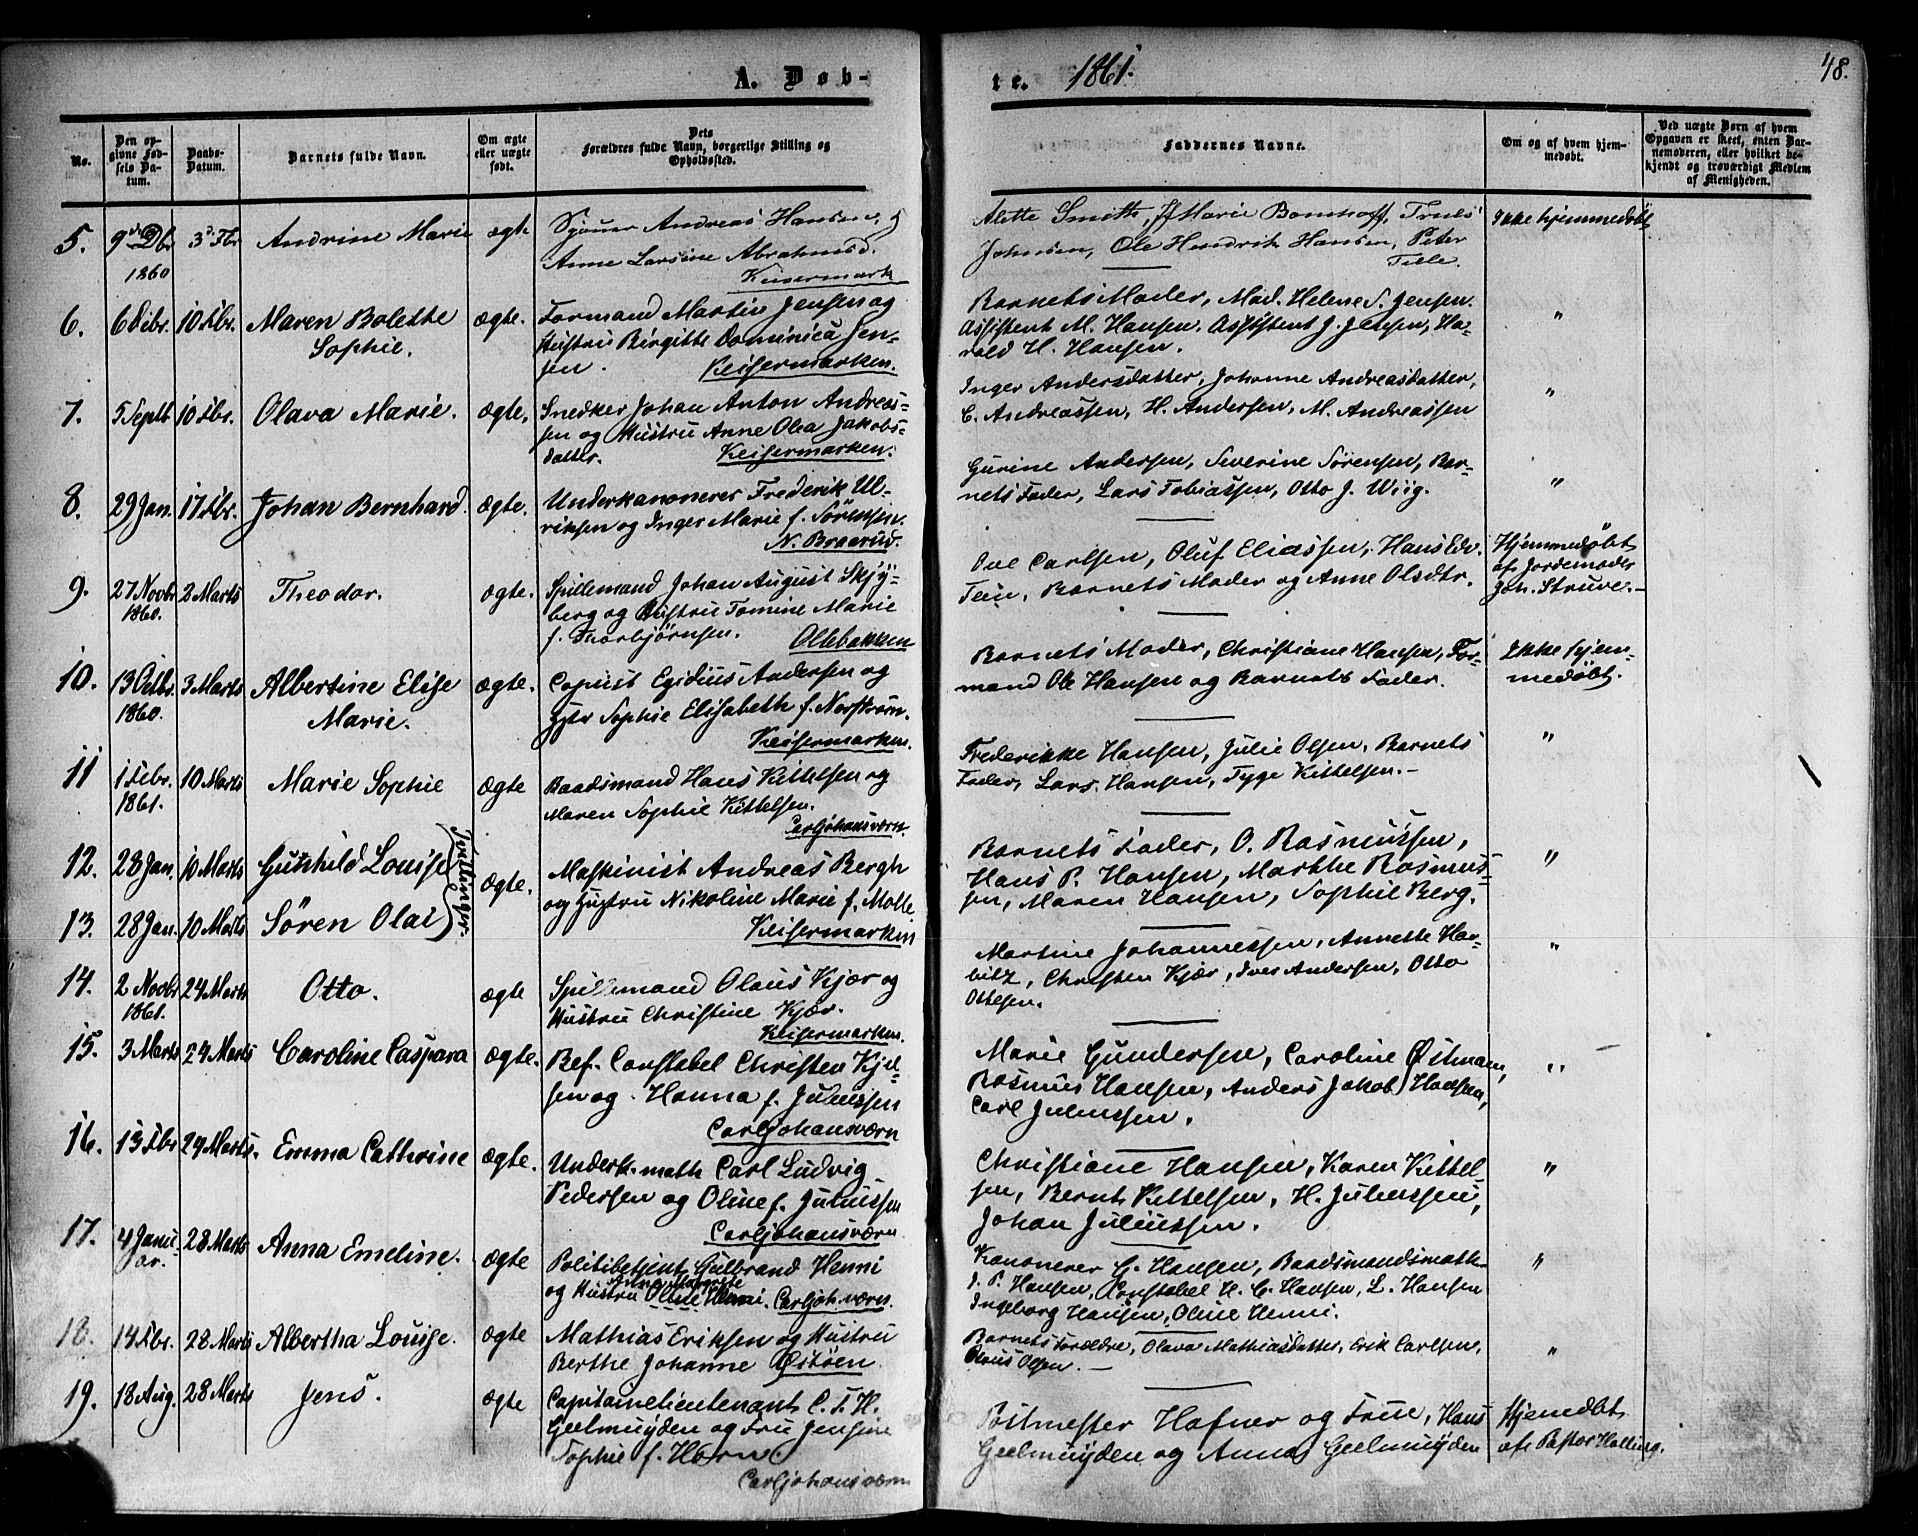 A. Døb-
te. 1861.
48.
No.
Den opgivne Fødsels Datum.
Daabs-Datum.
Barnets fulde Navn.
Om ægte eller uægte født.
Dets Forældres fulde Navn, borgerlige Stilling og Opholdssted.
Faddernes Navne.
Om og af hvem hjemmedøbt.
Ved uægte Børn af hvem Opgaven er skeet, enten Barnemoderen, eller hvilket bekjendt og troværdigt Medlem af Menigheden.
5. 9de Dbr 3d. Fbr Andrine Marie ægte
1860
Andreas Hansen og
Anne Larsine Abrahmsd.
Keisermark
Alette Smith, Marie Bomhoff, Truls
Johnsen, Ole Hendrik Hansen, Peter
Telle.
Ikke hjemmedøbt
6. 6 Debr. 10 Fbr. Maren Bolette ægte.
Sophie.
Formand Martin Jensen og
Hustru Birgitte Dominica Jen-
sen. Keisermarken.
Barnets Moder, Mad. Helene S. Jensen.
Assistent M. Hansen, Assistent J. Jensen, Ha-
rald H. Hansen.
"
7. 5 Septb 10 Fbr. Olava Marie. ægte,
Snedker Johan Anton Andreas-
sen og Hustru Anne Olea Jakobs-
datter. Keisermarken.
Inger Andersdatter, Johanne Andreasdatter,
C. Andreassen, H. Andersen, M. Andreassen
"
8. 29 Jan. 17 Fbr. Johan Bernhard. ægte.
Underkanonerer Frederik Ul-
riksen og Inger Marie f. Sørensen.
N. Braarud.
Gurine Andersen, Severine Sørensen, Bar-
nets Fader, Lars Tobiassen, Otto J. Wiig.
"
9. 27 Novbr 2 Marts Theodor. ægte.
1860.
Spillemand Johan August Skjy-
berg og Hustru Tomine Marie
f. Thorbjørnsen. Ollebakken
Ove Carlsen, Oluf Eliassen, Hans Edv.
Tein, Barnets Moder og Anne Olsdtr.
Hjemmedøbt
af Jordemoder
Joh. Struve.
10. 13 Octbr. 3 Marts Albertine Elise ægte.
1860. Marie.
Copiist Egidius Andersen og
Hustr Sophie Elisabeth f. Norstrøm.
Keisermarken.
Barnets Moder, Christiane Hansen, For-
mand Ole Hansen og Barnets Fader.
Ikke hjem-
medøbt.
11 1 Febr. 10 Marts Marie Sophie ægte
1861.
Baadsmand Hans Kittelsen og
Maren Sophie Kittelsen.
Carljohansværn.
Frederikke Hansen, Julie Olsen, Barnets
Fader, Lars Hansen, Tyge Kittelsen.
"
12. 28 Jan. 10 Marts Gunhild Louise ægte.
Tvillinger
Maskinist Andreas Bergh
og Hustru Nikoline Marie f. Molte
Keisermarken
13. 28 Jan. 10 Marts Søren Olai
Barnets Fader, O. Rasmussen,
Hans P. Hansen, Marthe Rasmus-
sen, Maren Hansen, Sophie Berg.
"
14. 2 Novbr 24 Marts Otto. ægte
1861.
Spillemand Olaus Kjær og
Hustru Christine Kjær.
Keisermarken.
Martine Johannessen, Annette Har-
bitz, Christen Kjær, Iver Andersen, Otto
Ottesen.
"
15. 3 Marts 24 Marts Caroline Caspara ægte.
Bef. Constabel Christen Kjel-
sen og Hanna f. Juliussen
Carljohansværn
Marie Gundersen, Caroline Østmann,
Rasmus Hansen, Anders Jakob Hansen,
Carl Juliussen.
"
16. 13 Fbr 24 Marts. Emma Cathrine ægte.
Underk.math Carl Ludvig
Pedersen og Oline f. Juliussen
Carljohansværn
Christiane Hansen, Karen Kittel-
sen, Bernt Kittelsen, H. Juliussen,
Johan Juliussen.
"
17. 4 Janu- 28 Marts Anna Emeline. ægte
ar.
Politibetjent Gulbrand Henni
og Hustru Oline Henni. Carljoh.værn.
Kanonerer G. Hansen, Baadsmandsmath
J. P. Hansen, Constabel H. C. Hansen, L. Hansen
Ingeborg Hansen, Oline Henni.
"
18. 14 Fbr. 28 Marts Albertha Louise. ægte
Mathias Eriksen og Hustru
Berthe Johanne Østøen.
Barnets Forældre, Olava Mathiasdatter, Erik Carlsen,
Olaus Olsen.
"
19. 18 Aug. 28 Marts Jens. ægte
Capitainelieutenant C. T. H.
Geelmuyden og Frue Jensine
Sophie f. Horn
Carljohansværn
Postmester Hafner og Frue, Hans
Geelmuyden og Anna Geelmuyden
Hjemedøbt
af Pastor Halling.